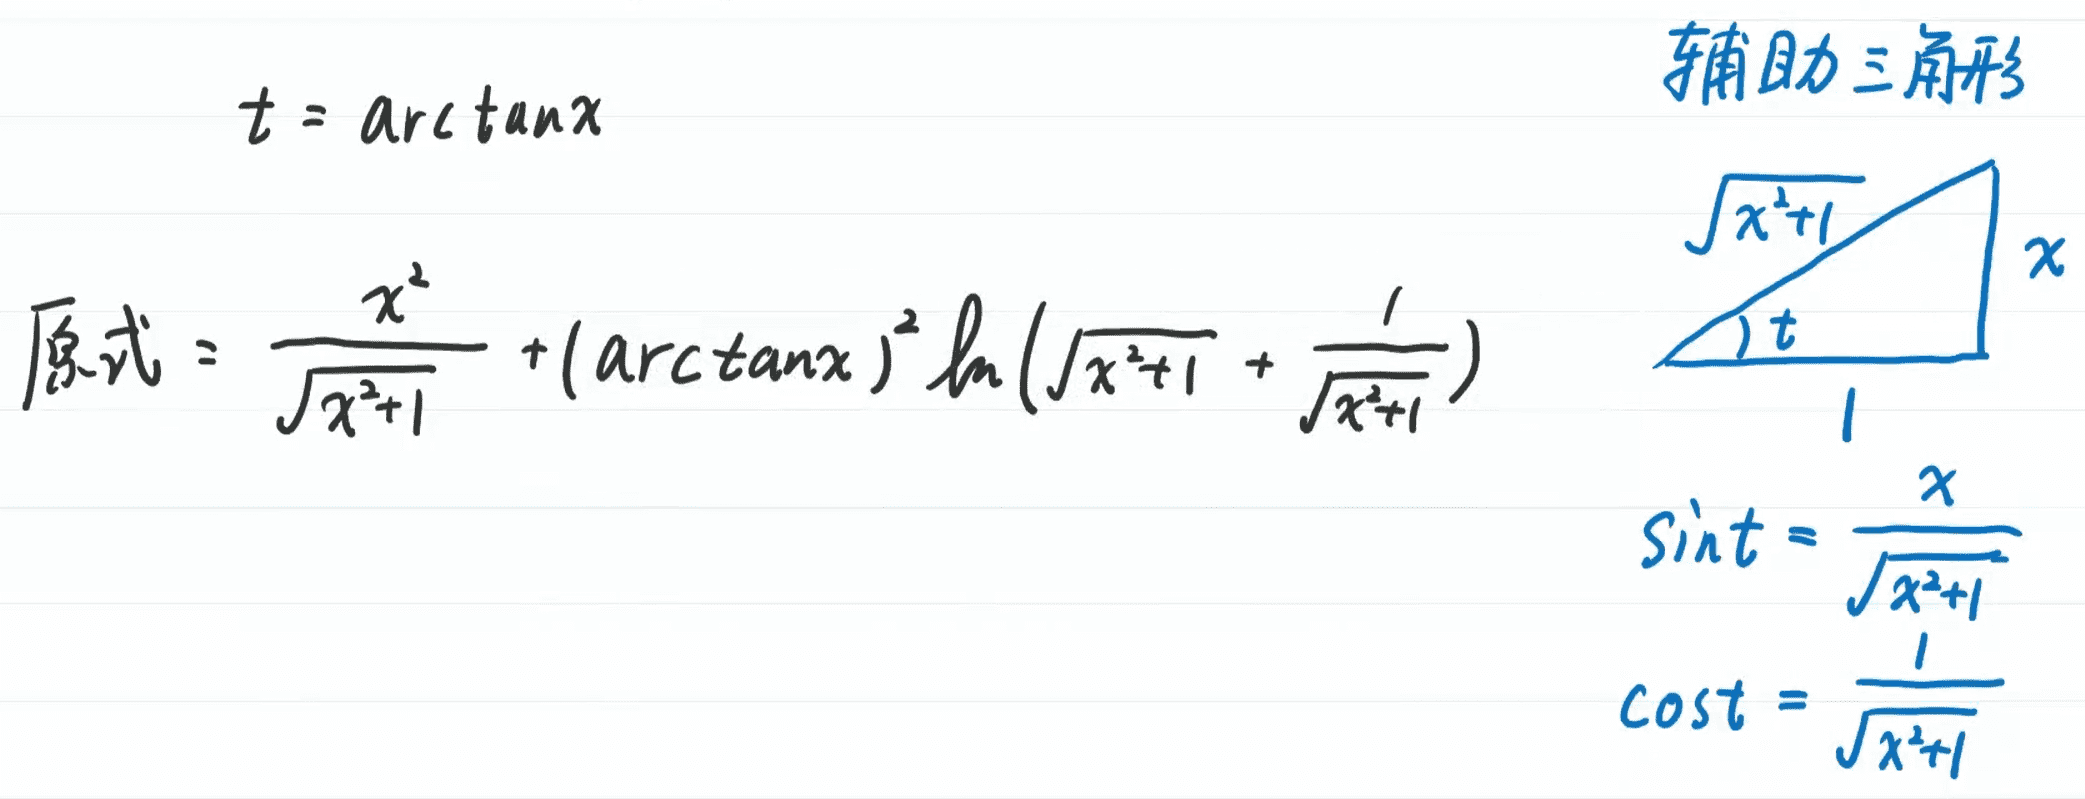 t = arctanx
原式 = x²/√(x²+1) + (arctanx)² ln(√(x²+1) + 1/√(x²+1))
辅助三角形
√(x²+1)
x
t
1
sint = x/√(x²+1)
cost = 1/√(x²+1)